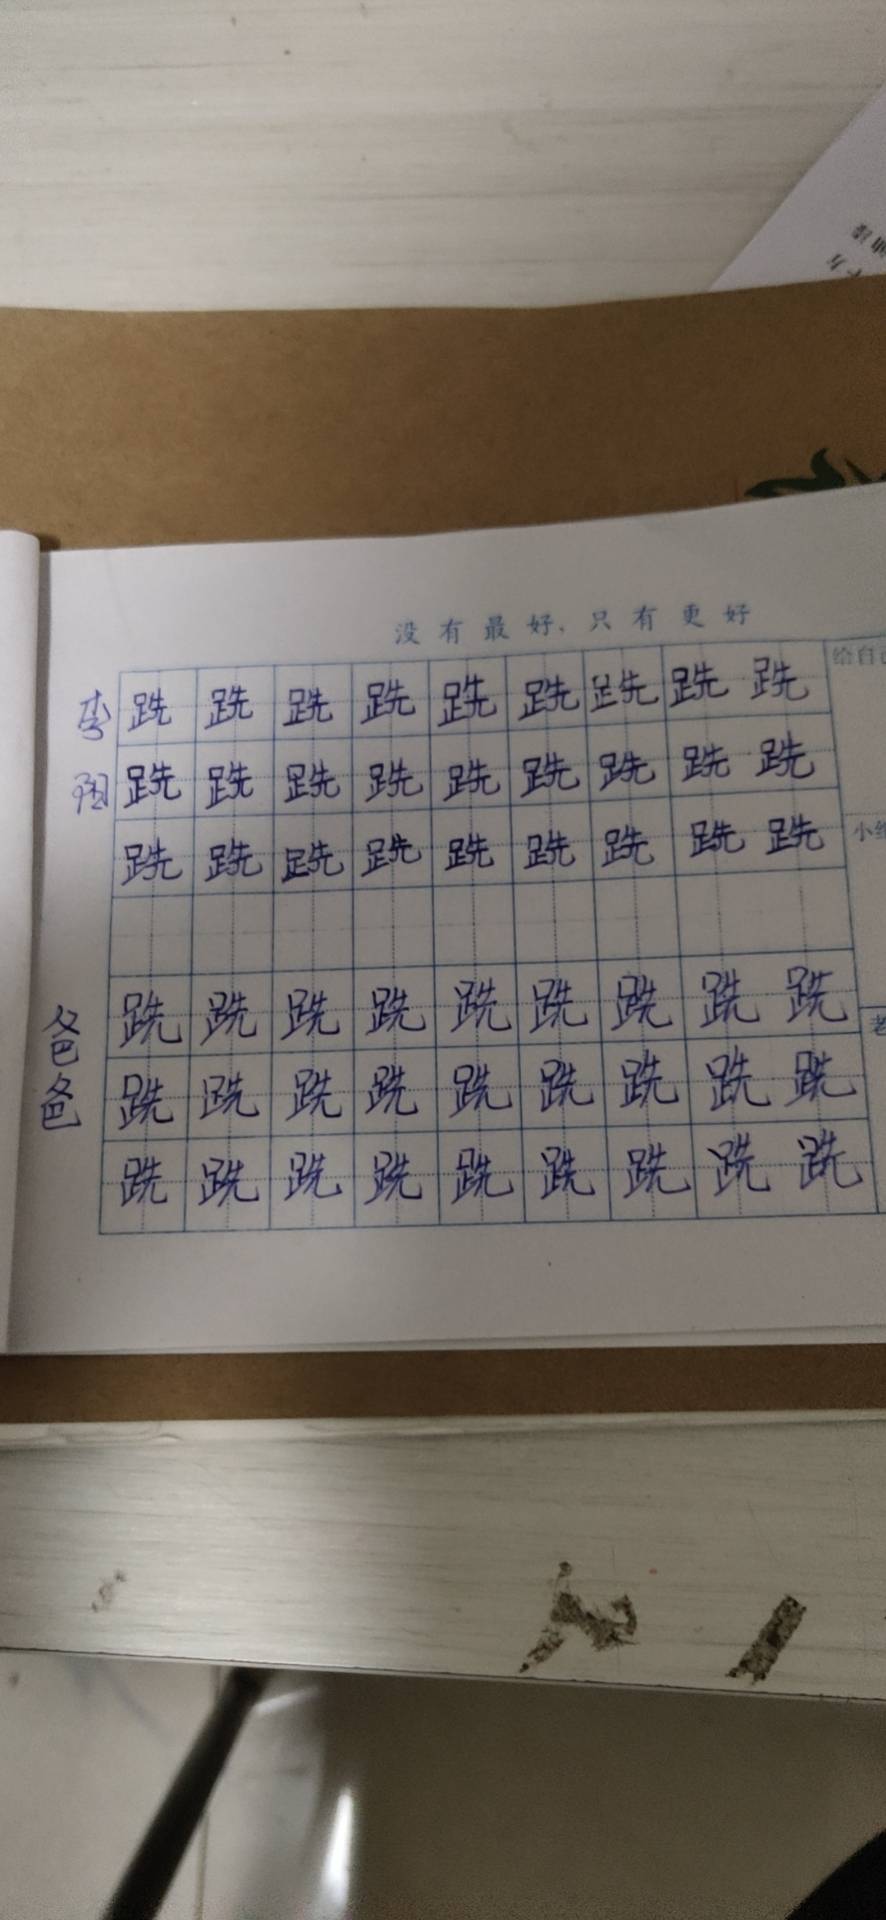 没有最好，只有更好
给自己
李 跣 跣 跣 跣 跣 跣 跣 跣 跣
跣 跣 跣 跣 跣 跣 跣 跣 跣
跣 跣 跣 跣 跣 跣 跣 跣 跣
小组
爸 跣 跣 跣 跣 跣 跣 跣 跣 跣
老
爸 跣 跣 跣 跣 跣 跣 跣 跣 跣
跣 跣 跣 跣 跣 跣 跣 跣 跣